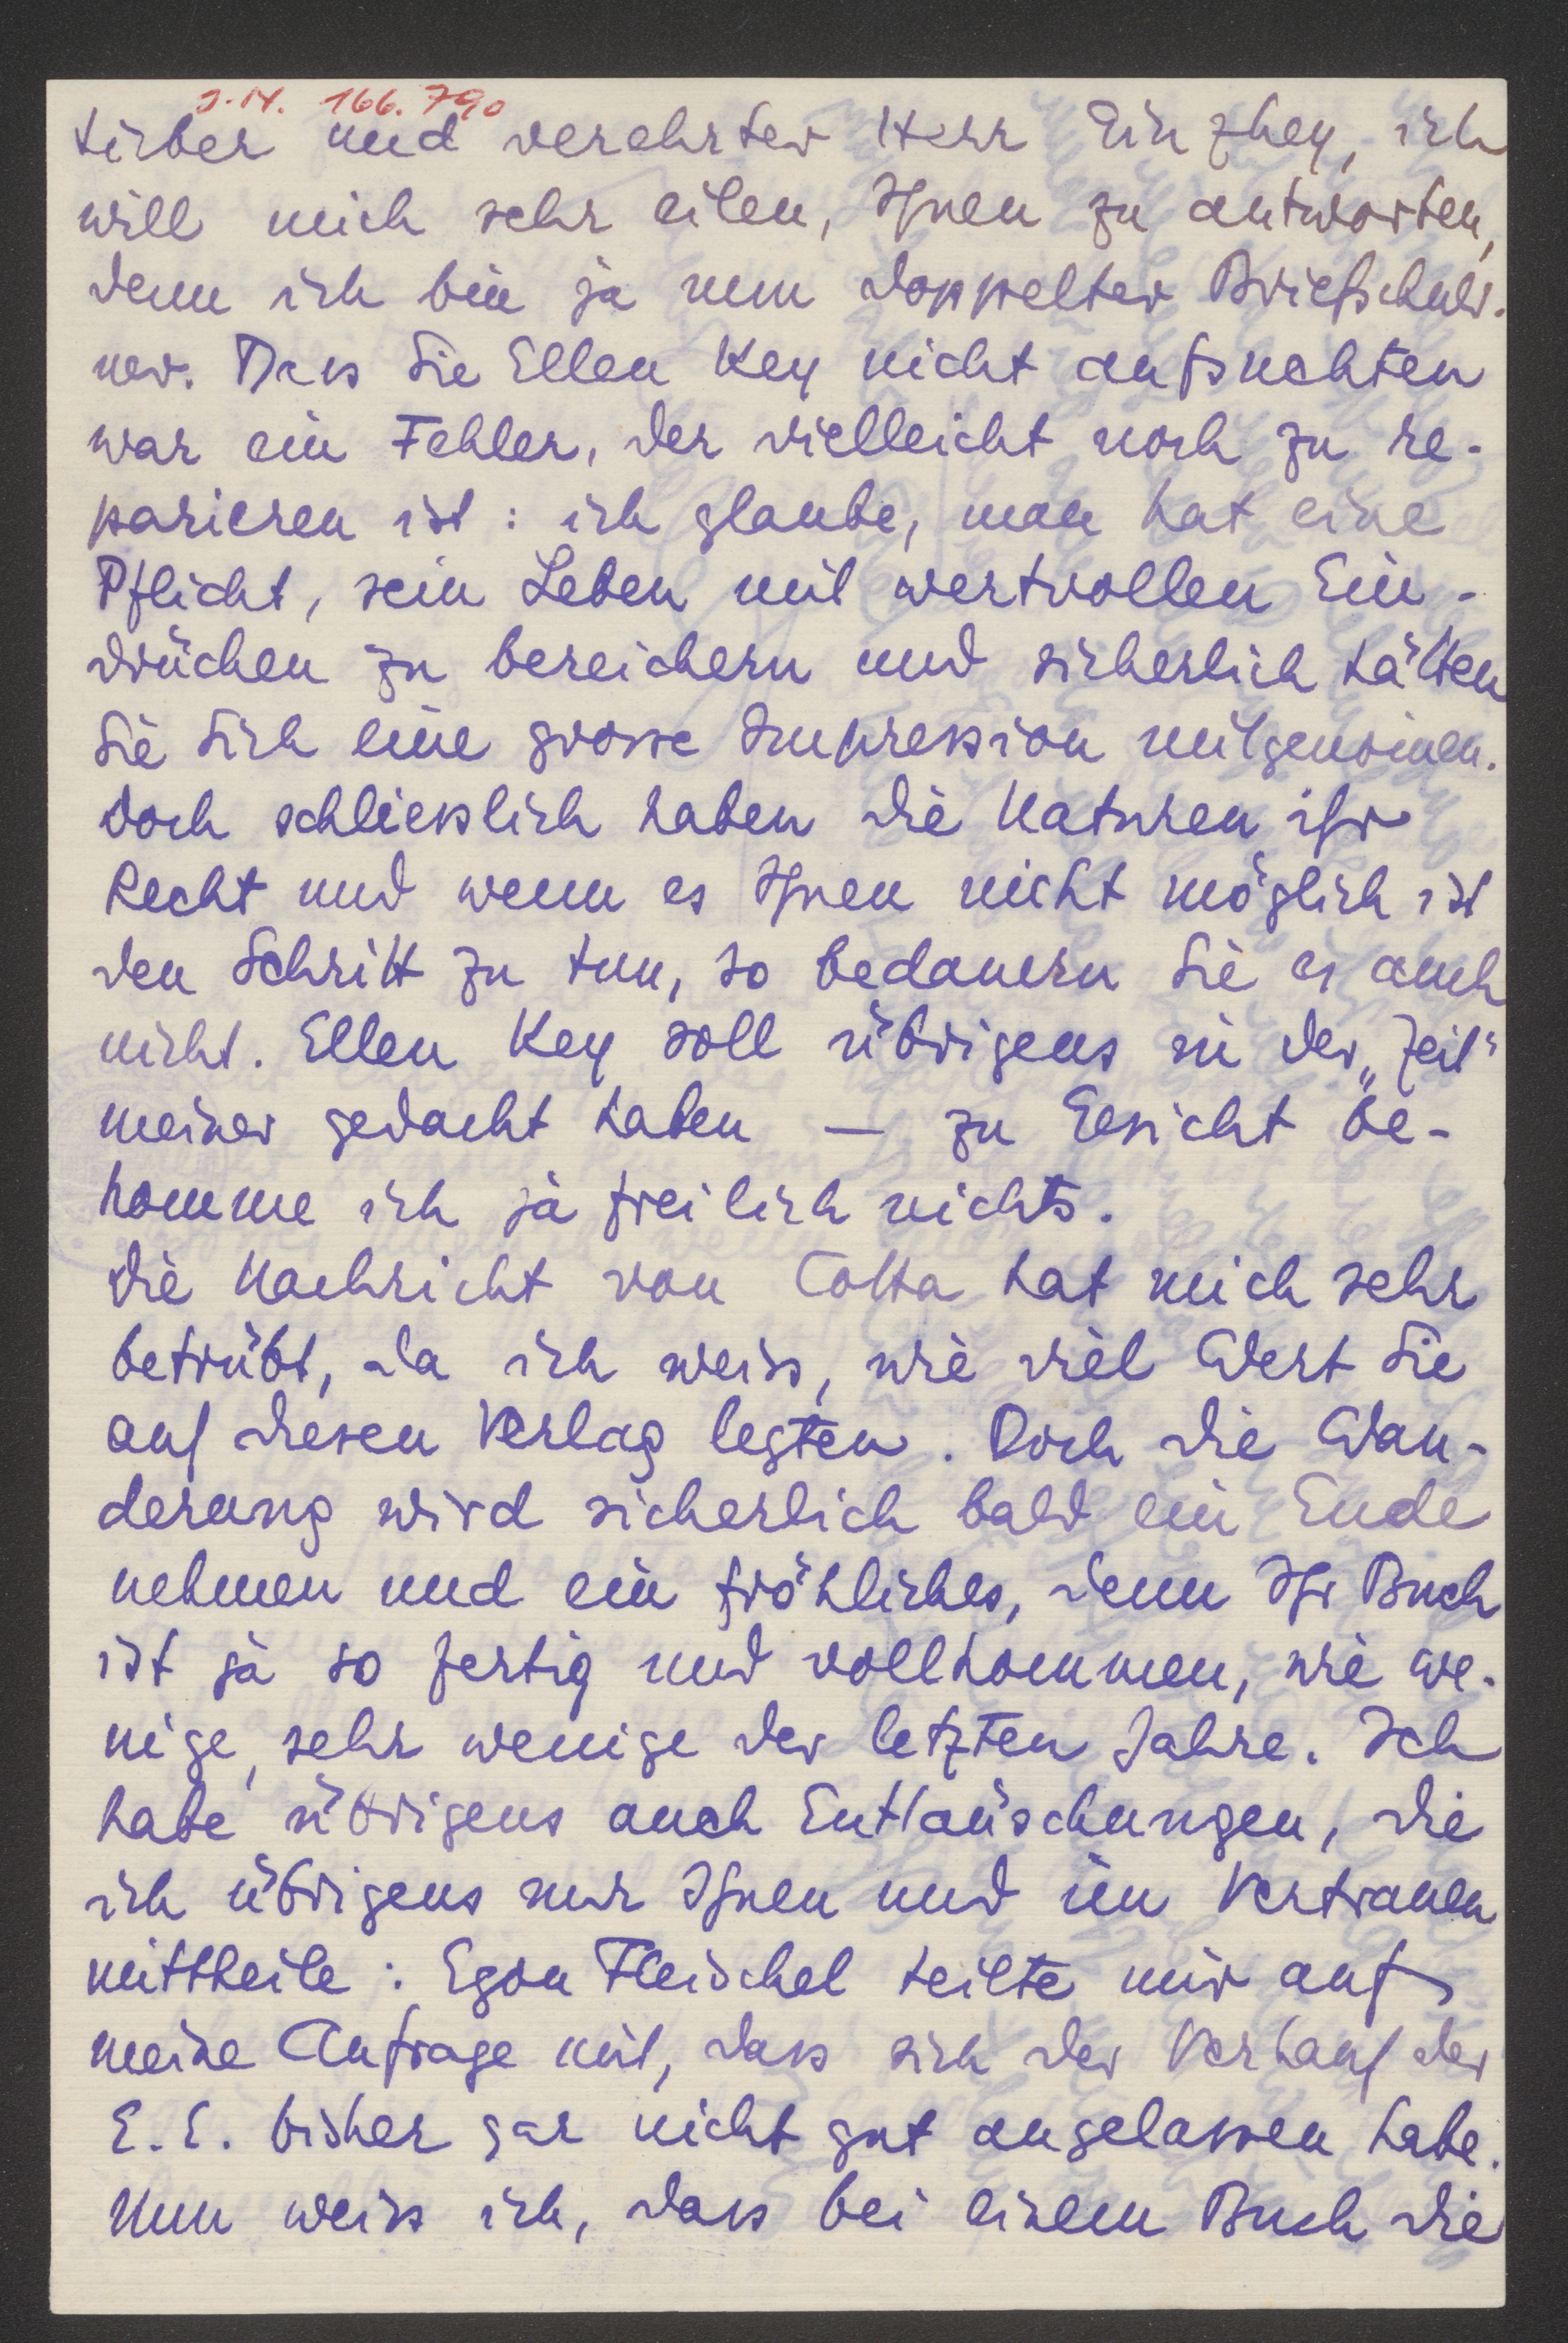 J.N. 166.790
Lieber und verehrter Herr Ginzkey, ich
will mich sehr eilen, Ihnen zu antworten,
denn ich bin ja nun doppelter Briefschuld-
ner. Dass Sie Ellen Key nicht aufsuchten
war ein Fehler, der vielleicht noch zu re-
parieren ist: ich glaube, man hat eine
Pflicht, sein Leben mit wertvollen Ein-
drücken zu bereichern und sicherlich hätten
Sie Sich eine grosse Impression mitgenom̄en.
Doch schliesslich haben die Naturen ihr
Recht und wenn es Ihnen nicht möglich ist
den Schritt zu tun, so bedauern Sie es auch
nicht. Ellen Key soll übrigens in der „Zeit"
meiner gedacht haben — zu Gesicht be-
komme ich ja freilich nichts.
Die Nachricht von Cotta hat mich sehr
betrübt, da ich weiss, wie viel Wert Sie
auf diesen Verlag legten. Doch die Wan-
derung wird sicherlich bald ein Ende
nehmen und ein fröhliches, denn Ihr Buch
ist ja so fertig und vollkommen, wie we-
nige, sehr wenige der letzten Jahre. Ich
habe übrigens auch Enttäuschungen, die
ich übrigens nur Ihnen und im Vertrauen
mittheile: Egon Fleischel teilte mir auf
meine Anfrage mit, dass sich der Verkauf der
E.E. bisher gar nicht gut angelassen habe.
Nun weiss ich, dass bei einem Buch die